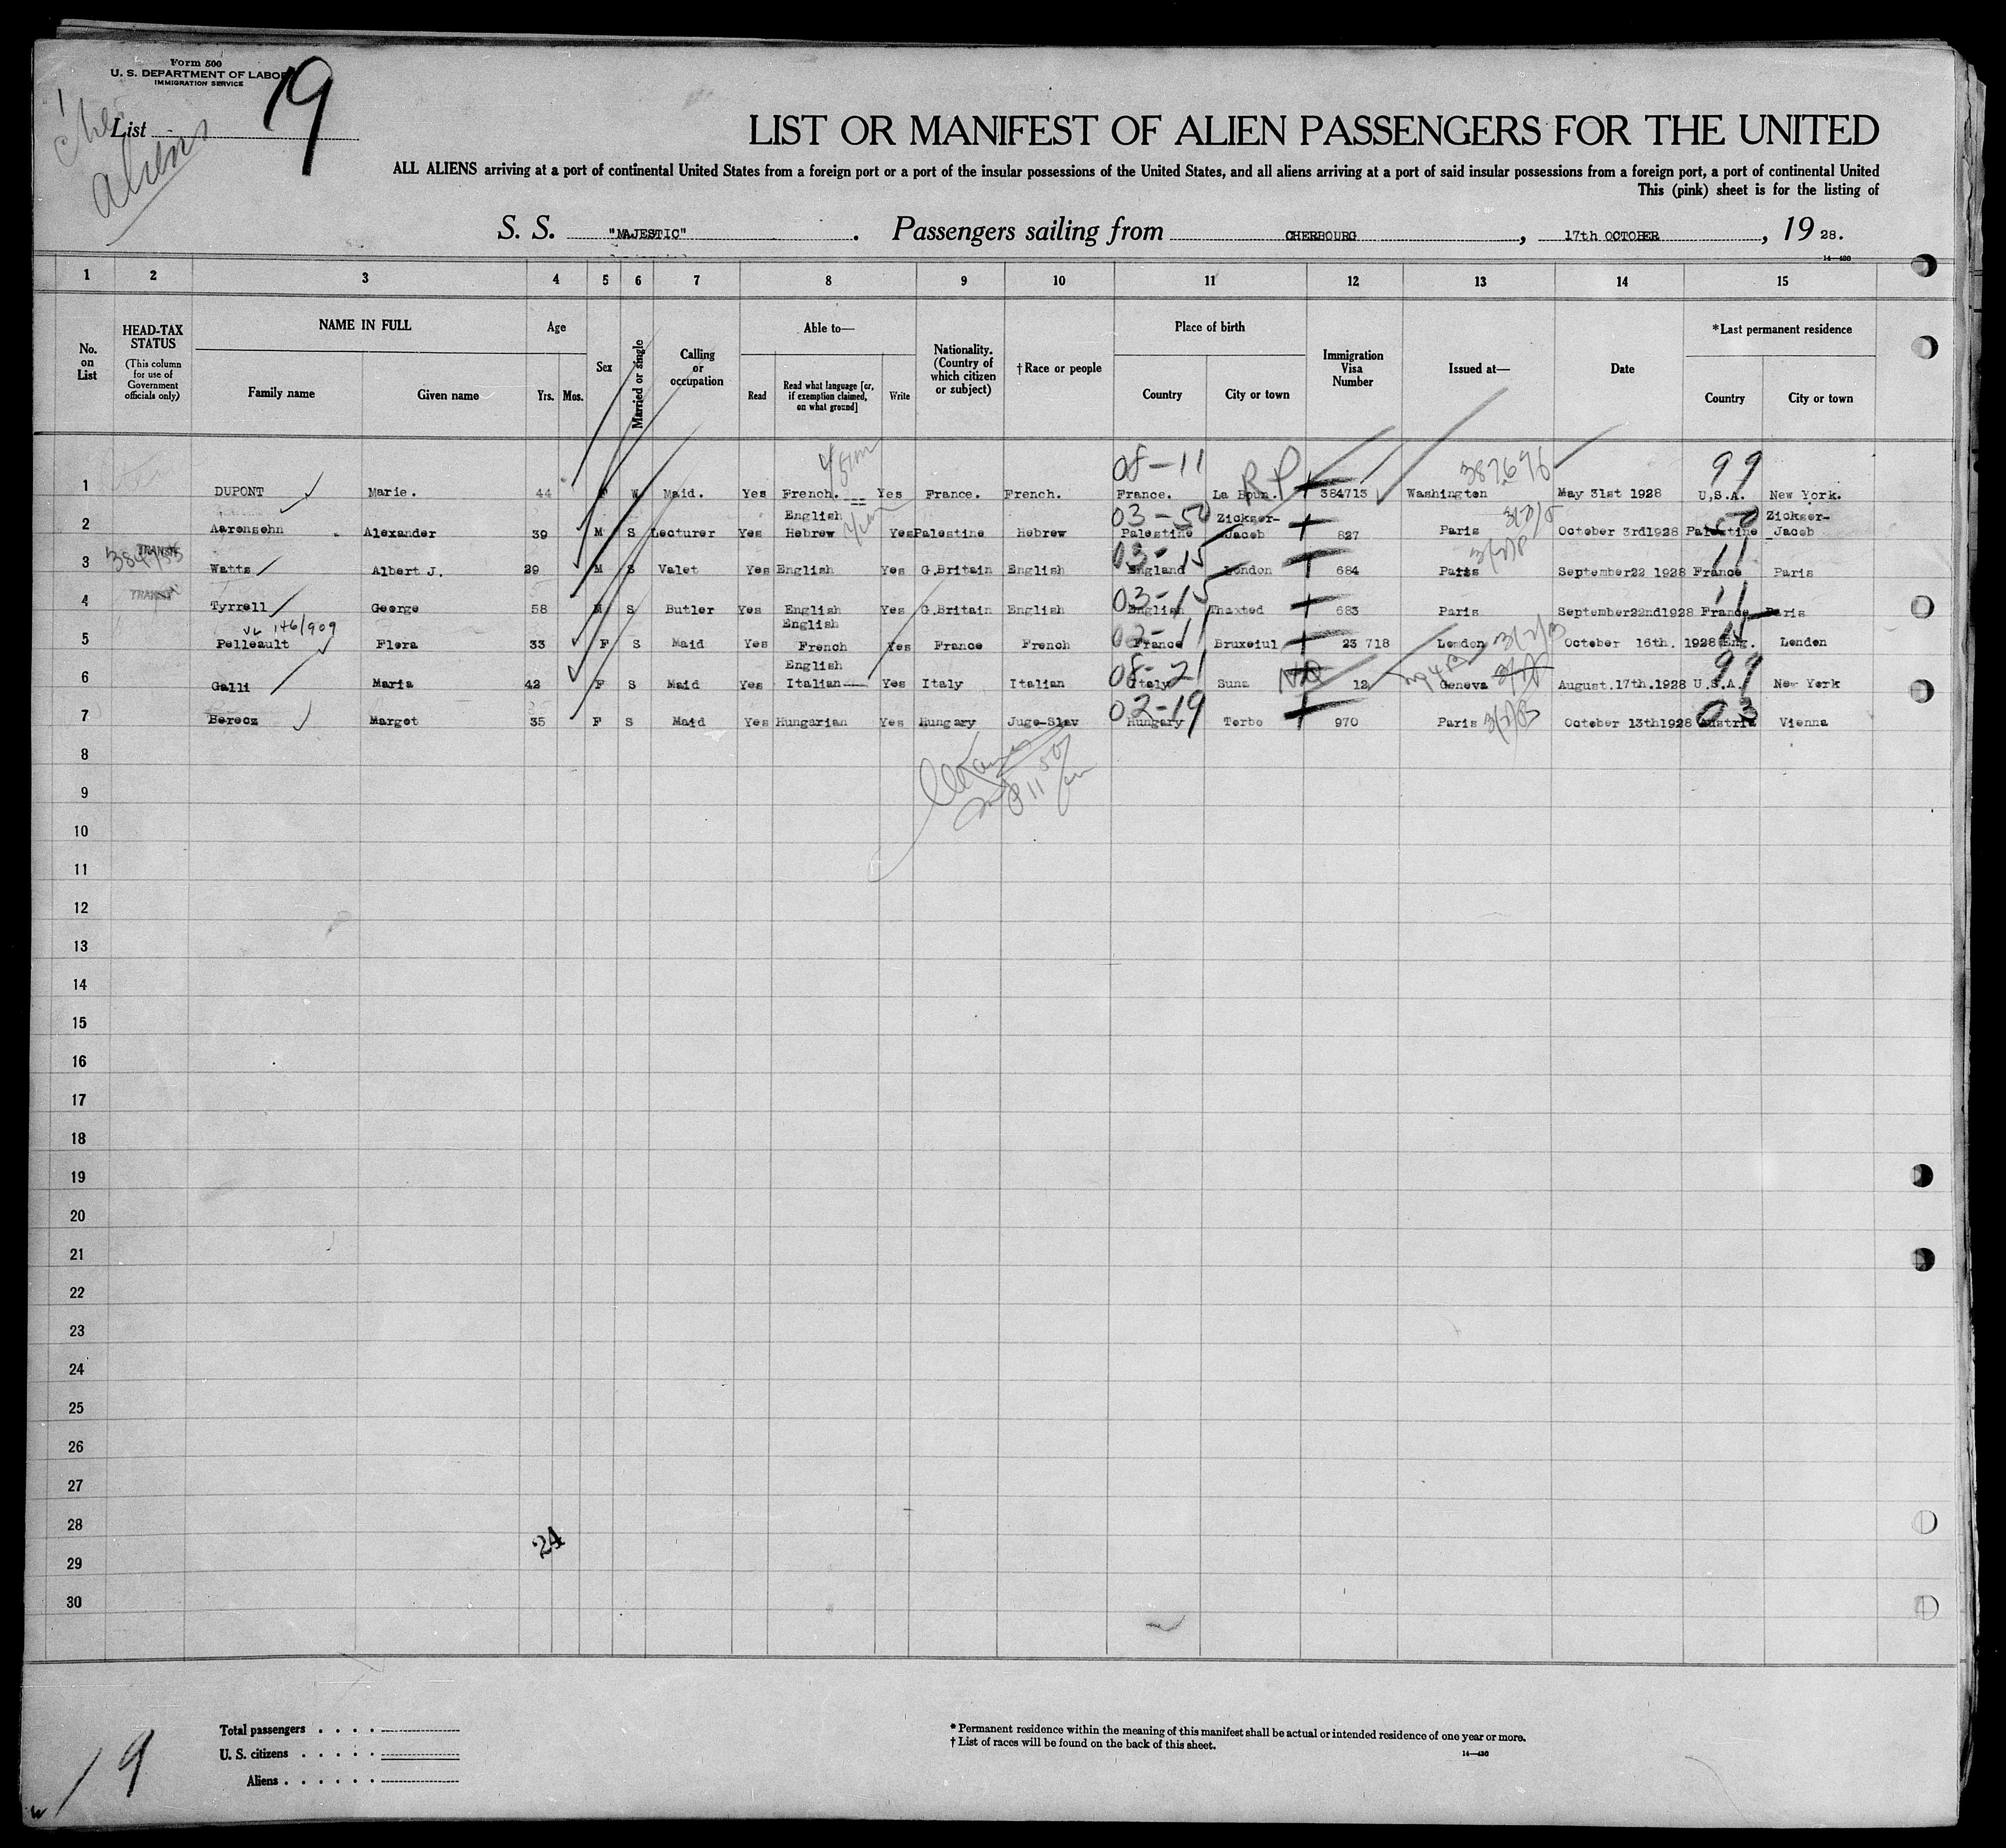 Form 500
U. S. DEPARTMENT OF LABOR
IMMIGRATION SERVICE
List 19
aliens
LIST OR MANIFEST OF ALIEN PASSENGERS FOR THE UNITED
ALL ALIENS arriving at a port of continental United States from a foreign port or a port of the insular possessions of the United States, and all aliens arriving at a port of said insular possessions from a foreign port, a port of continental United
This (pink) sheet is for the listing of
S. S. "MAJESTIC" . Passengers sailing from CHERBOURG , 17th OCTOBER , 19 28.
14—430
1 2 3 4 5 6 7 8 9 10 11 12 13 14 15
No. on List
HEAD-TAX STATUS
(This column for use of Government officials only)
NAME IN FULL
Family name Given name
Age
Yrs. Mos.
Sex
Married or single
Calling or occupation
Able to—
Read
Read what language [or, if exemption claimed, on what ground]
Write
Nationality. (Country of which citizen or subject)
† Race or people
Place of birth
Country City or town
Immigration Visa Number
Issued at—
Date
* Last permanent residence
Country City or town
08-11 RP 387696 99
1 DUPONT Marie. 44 F W Maid. Yes French. Yes France. French. France. La Boun. 384713 Washington May 31st 1928 U.S.A. New York.
English 03-50 Zickser- 50 Zickser-
2 Aaronsohn Alexander 39 M S Lecturer Yes Hebrew Yes Palestine Hebrew Palestine Jacob 827 Paris October 3rd1928 Palestine Jacob
TRANSIT 03-15 11
3 Watts Albert J. 29 M S Valet Yes English Yes G.Britain English England London 684 Paris September22 1928 France Paris
TRANSIT 03-15 11
4 Tyrrell George 58 M S Butler Yes English Yes G.Britain English English Thaxted 683 Paris September22nd1928 France Paris
146/909 English 02-11 15
5 Pelleault Flora 33 F S Maid Yes French Yes France French France Bruxeiul 23 718 London October 16th. 1928 Eng. London
English 08-21 99
6 Galli Maria 42 F S Maid Yes Italian Yes Italy Italian Italy Suna 12 Geneva August.17th.1928 U.S.A. New York
02-19 03
7 Berecz Margot 35 F S Maid Yes Hungarian Yes Hungary Jugo-Slav Hungary Torbo 970 Paris October 13th1928 Austria Vienna
8
9
10
11
12
13
14
15
16
17
18
19
20
21
22
23
24
25
26
27
28
24
29
30
Total passengers
U. S. citizens
Aliens
19
* Permanent residence within the meaning of this manifest shall be actual or intended residence of one year or more.
† List of races will be found on the back of this sheet.
14—430